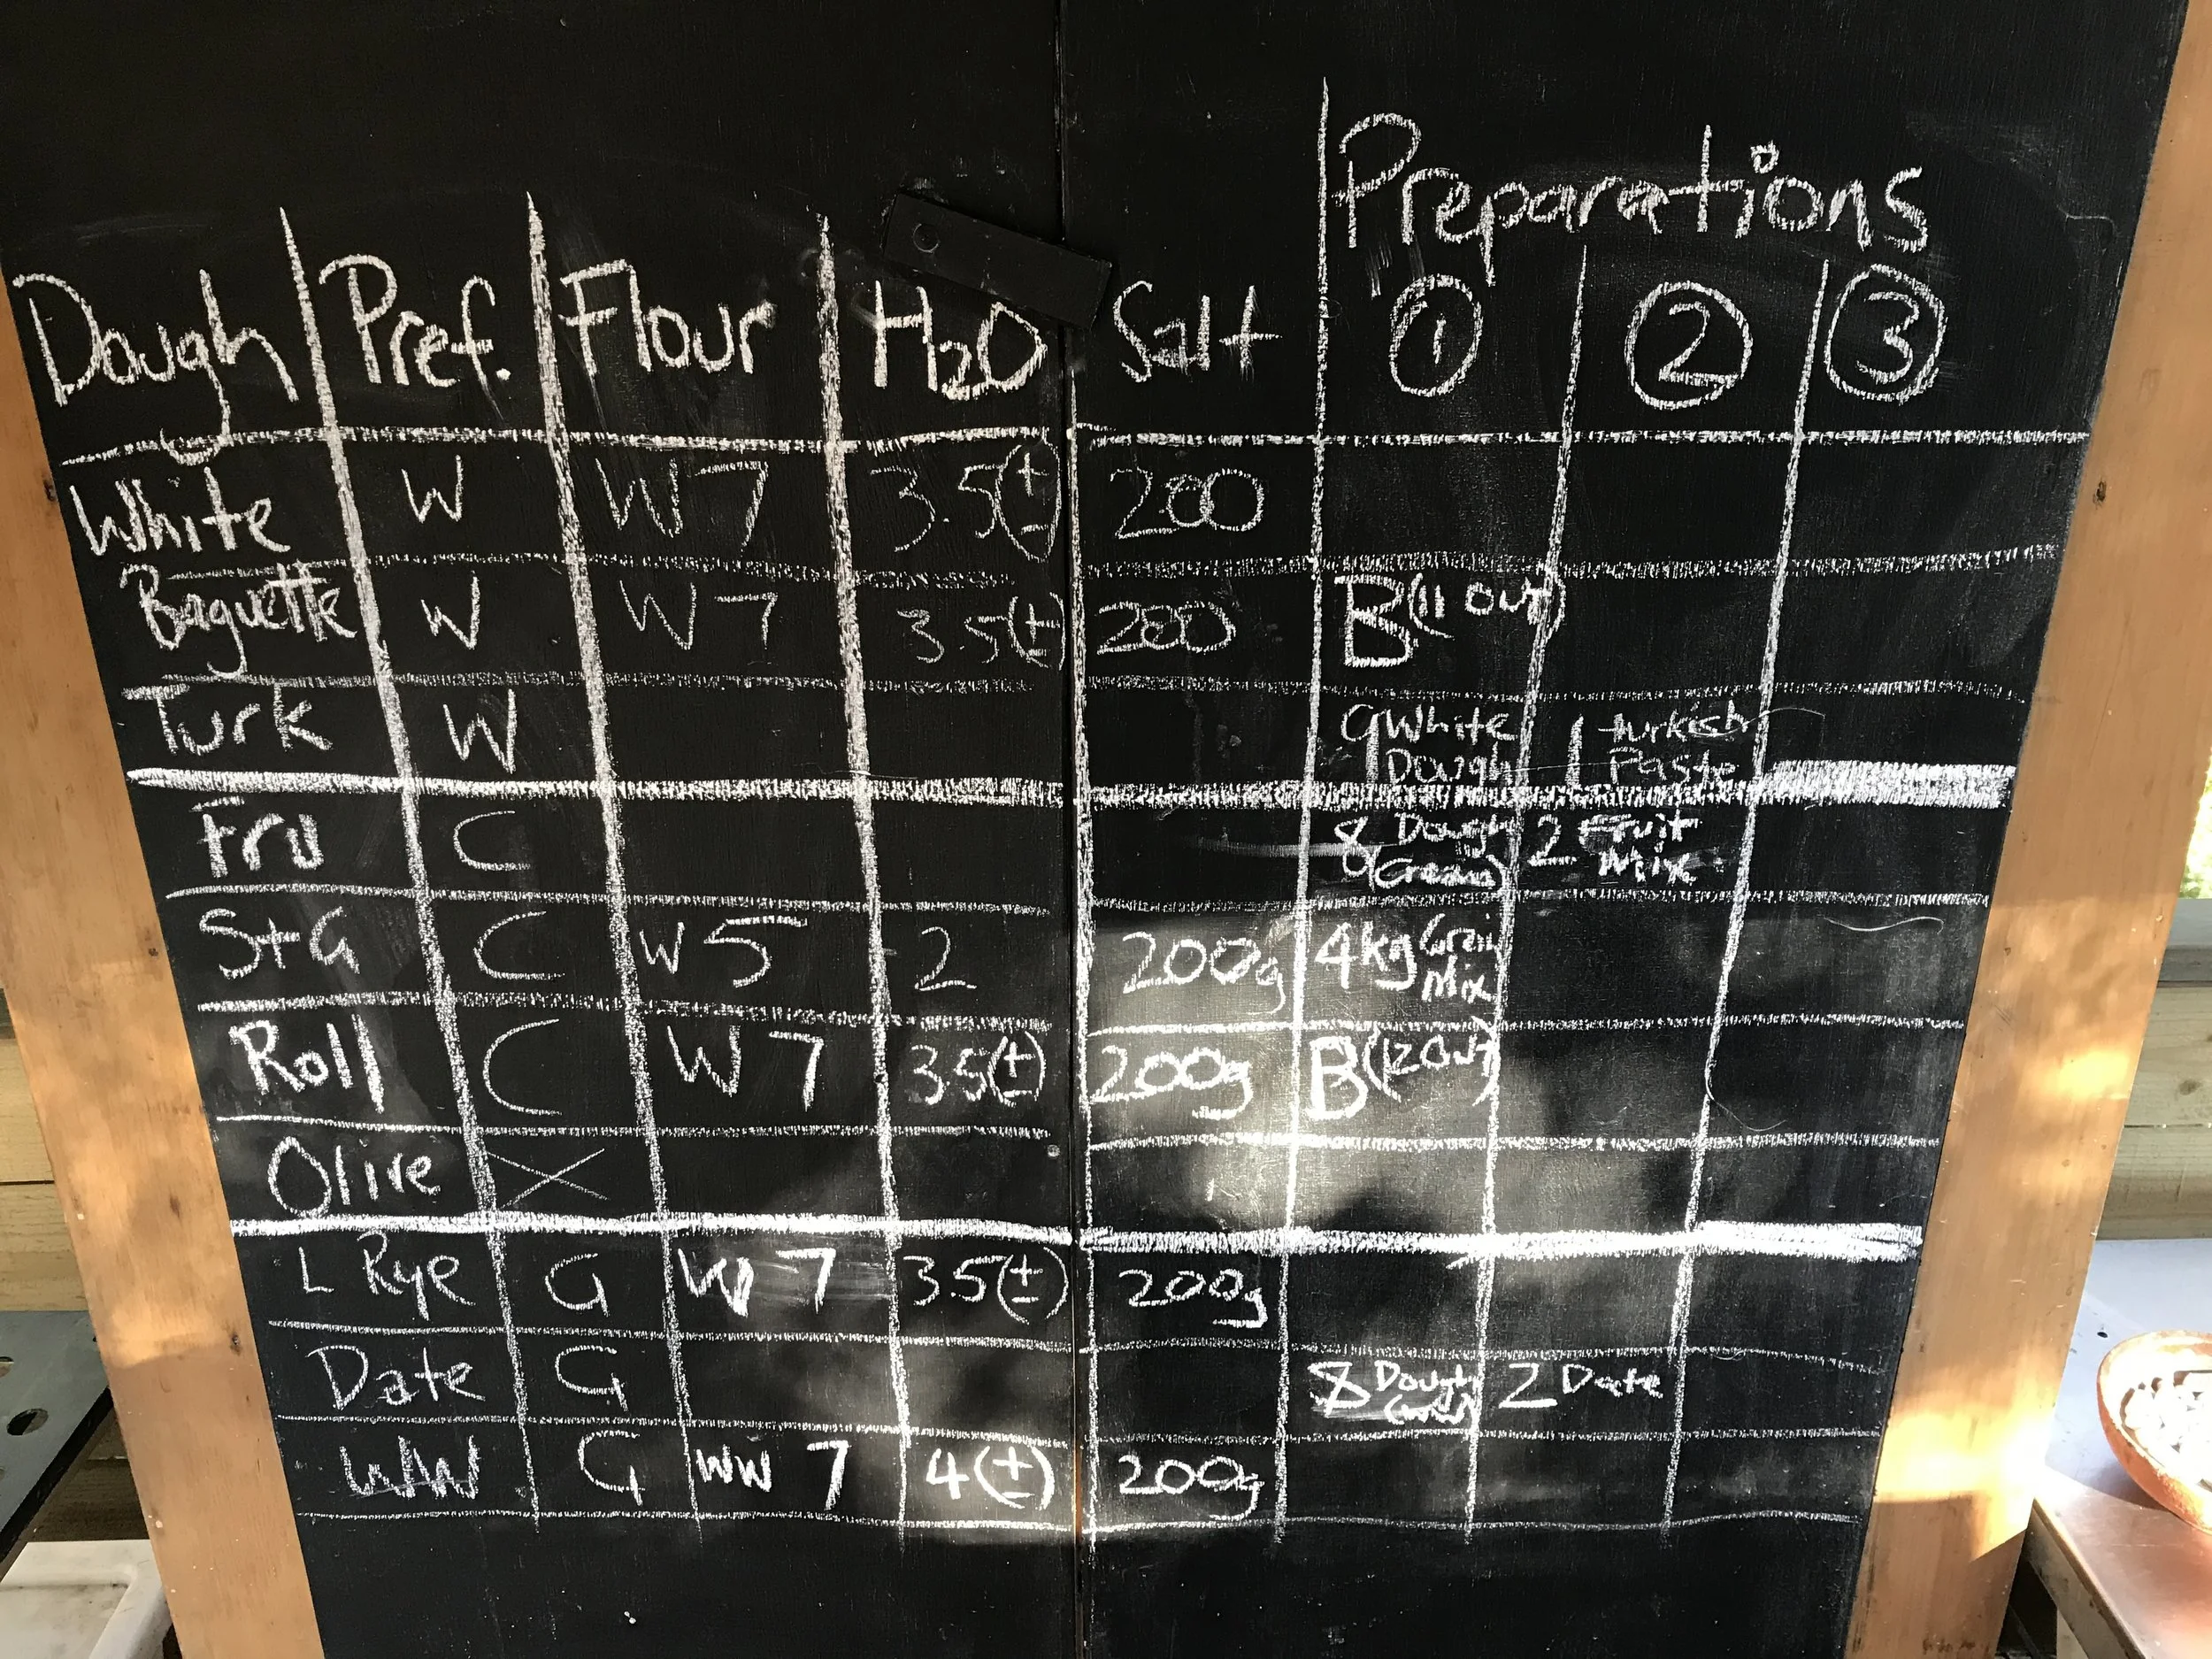 Preparations
Dough Pref. Flour H2O Salt ① ② ③
White W W 7 3.5(±) 200
Baguette W W 7 3.5(±) 200 B(11 out)
Turk W 9 White Dough 1 turkish Paste
Fru C 8 Dough (Cream) 2 Fruit Mix
S+G C W 5 2 200g 4kg Grain Mix
Roll C W 7 3.5(±) 200g B(12 out)
Olive X
L Rye G W 7 3.5(±) 200g
Date G 8 Dough 2 Date
WW G WW 7 4(±) 200g